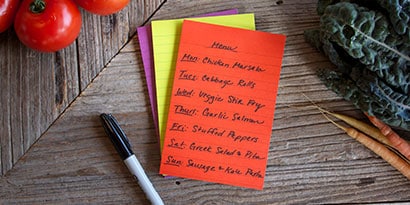 Menu
Mon: Chicken Marsala
Tues: Cabbage Rolls
Wed: Veggie Stir Fry
Thurs: Garlic Salmon
Fri: Stuffed Peppers
Sat: Greek Salad & Pita
Sun: Sausage & Kale Pasta